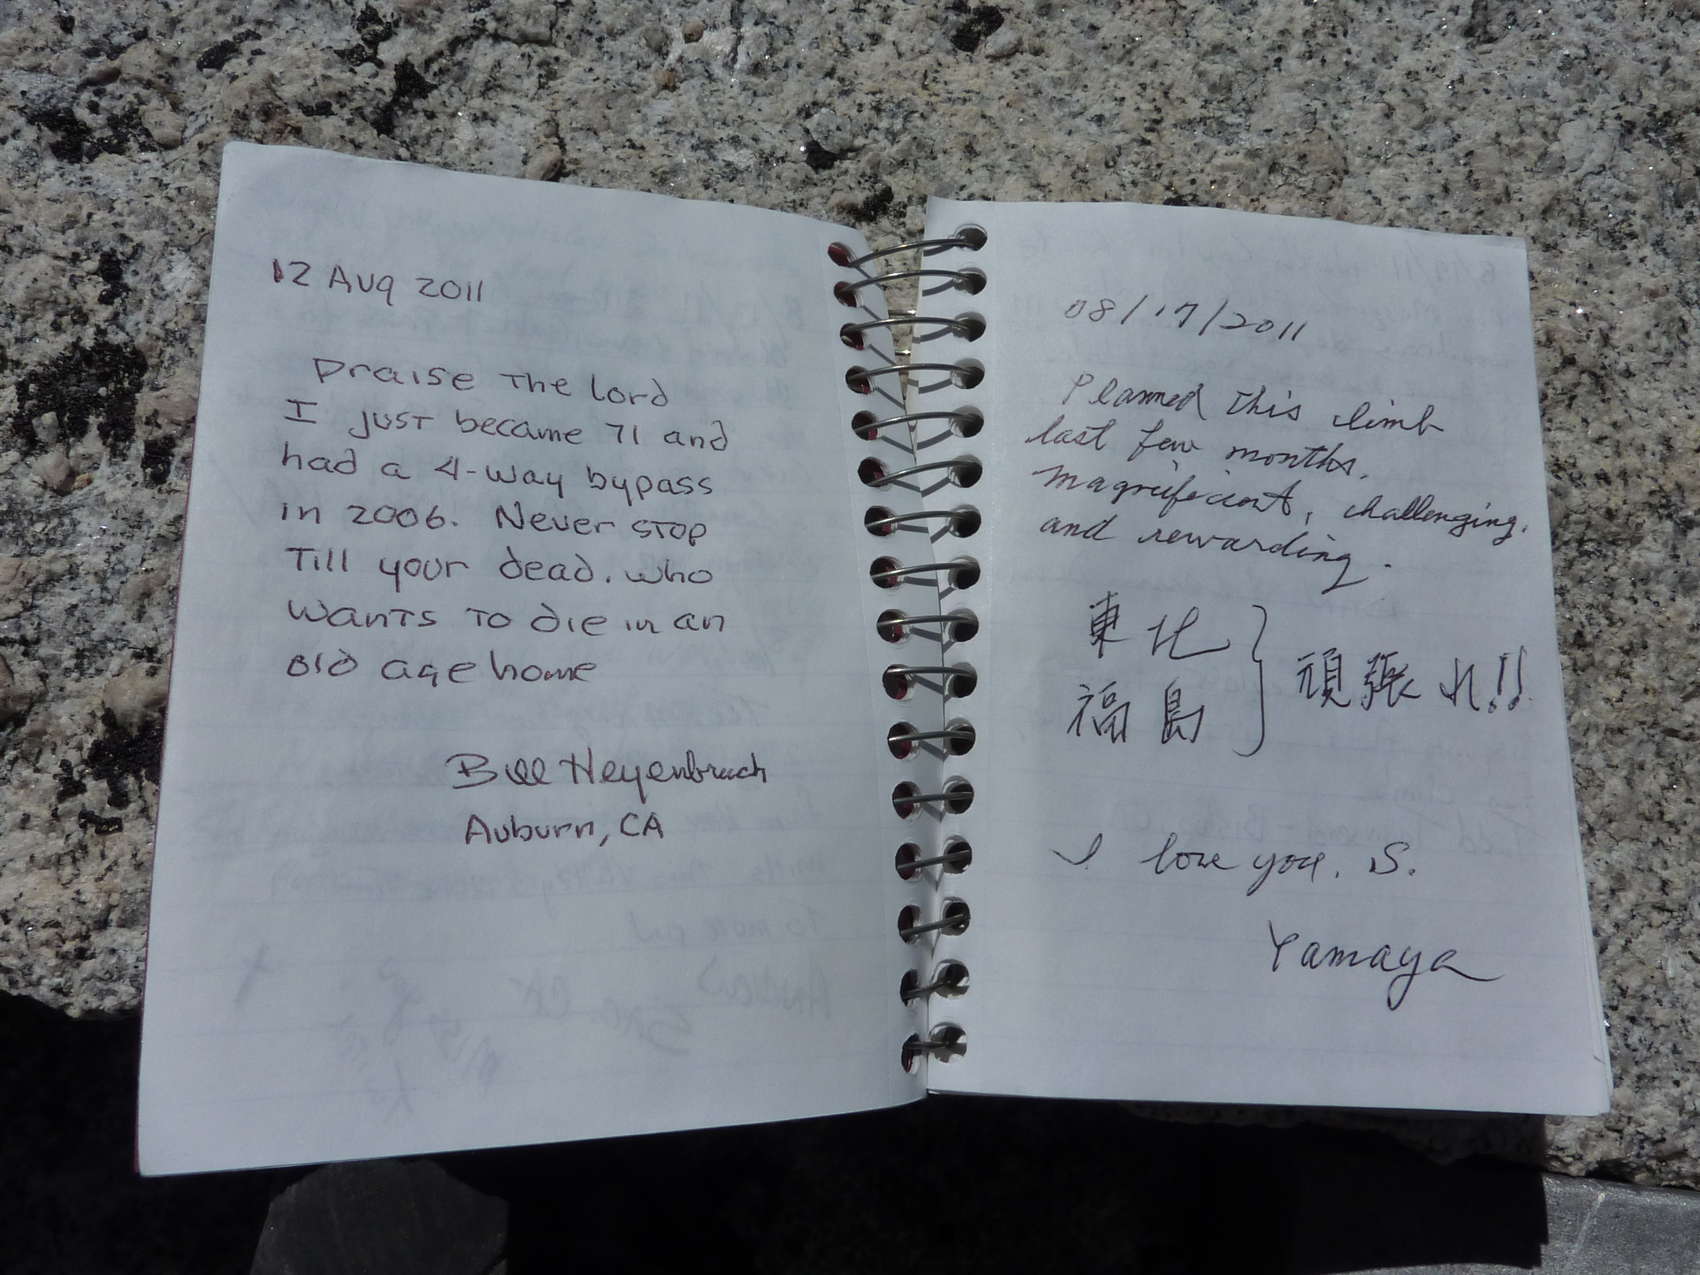 12 Aug 2011
Praise The Lord
I just became 71 and
had a 4-way bypass
in 2006. Never stop
Till your dead. who
wants to die in an
old age home
Bill Heyenbruch
Auburn, CA
08/17/2011
Planned this climb
last few months.
Magnificient, challenging,
and rewarding.
東北
福島 } 頑張れ!!
I love you, S.
Yamaya